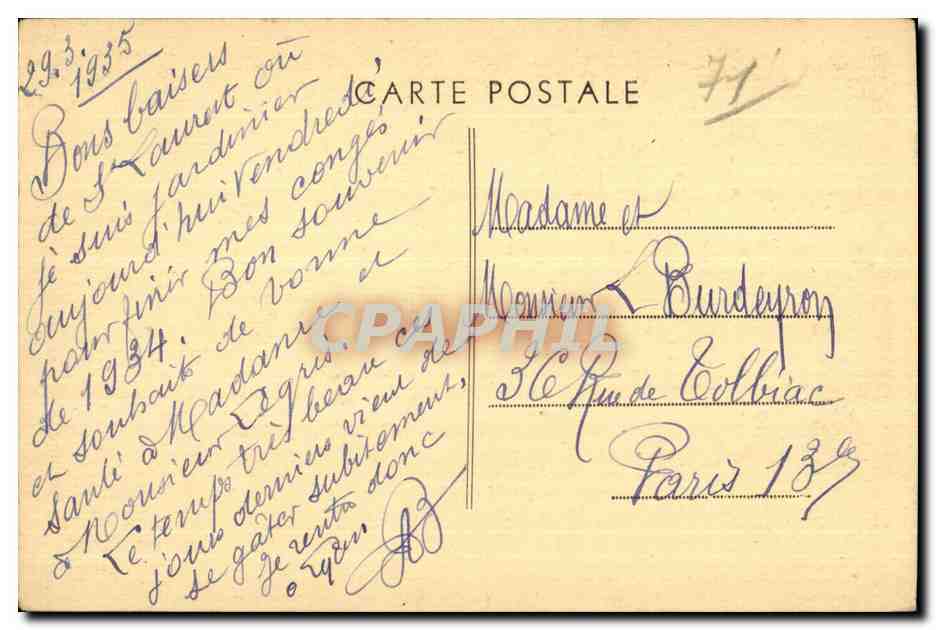 29.3.
1935
Bons baisers
de St Laurent où
je suis jardinier
aujourd'hui vendredi,
pour finir mes congés
de 1934. Bon souvenir
et souhait de bonne
santé à Madame et
Monsieur Legris.
Le temps très beau ces
jours derniers vient de
se gâter subitement,
je rentre donc
à Lyon
AB
CARTE POSTALE
71
Madame et
Monsieur L Burdeyron
36 Rue de Tolbiac
Paris 13e
CPAPHIL